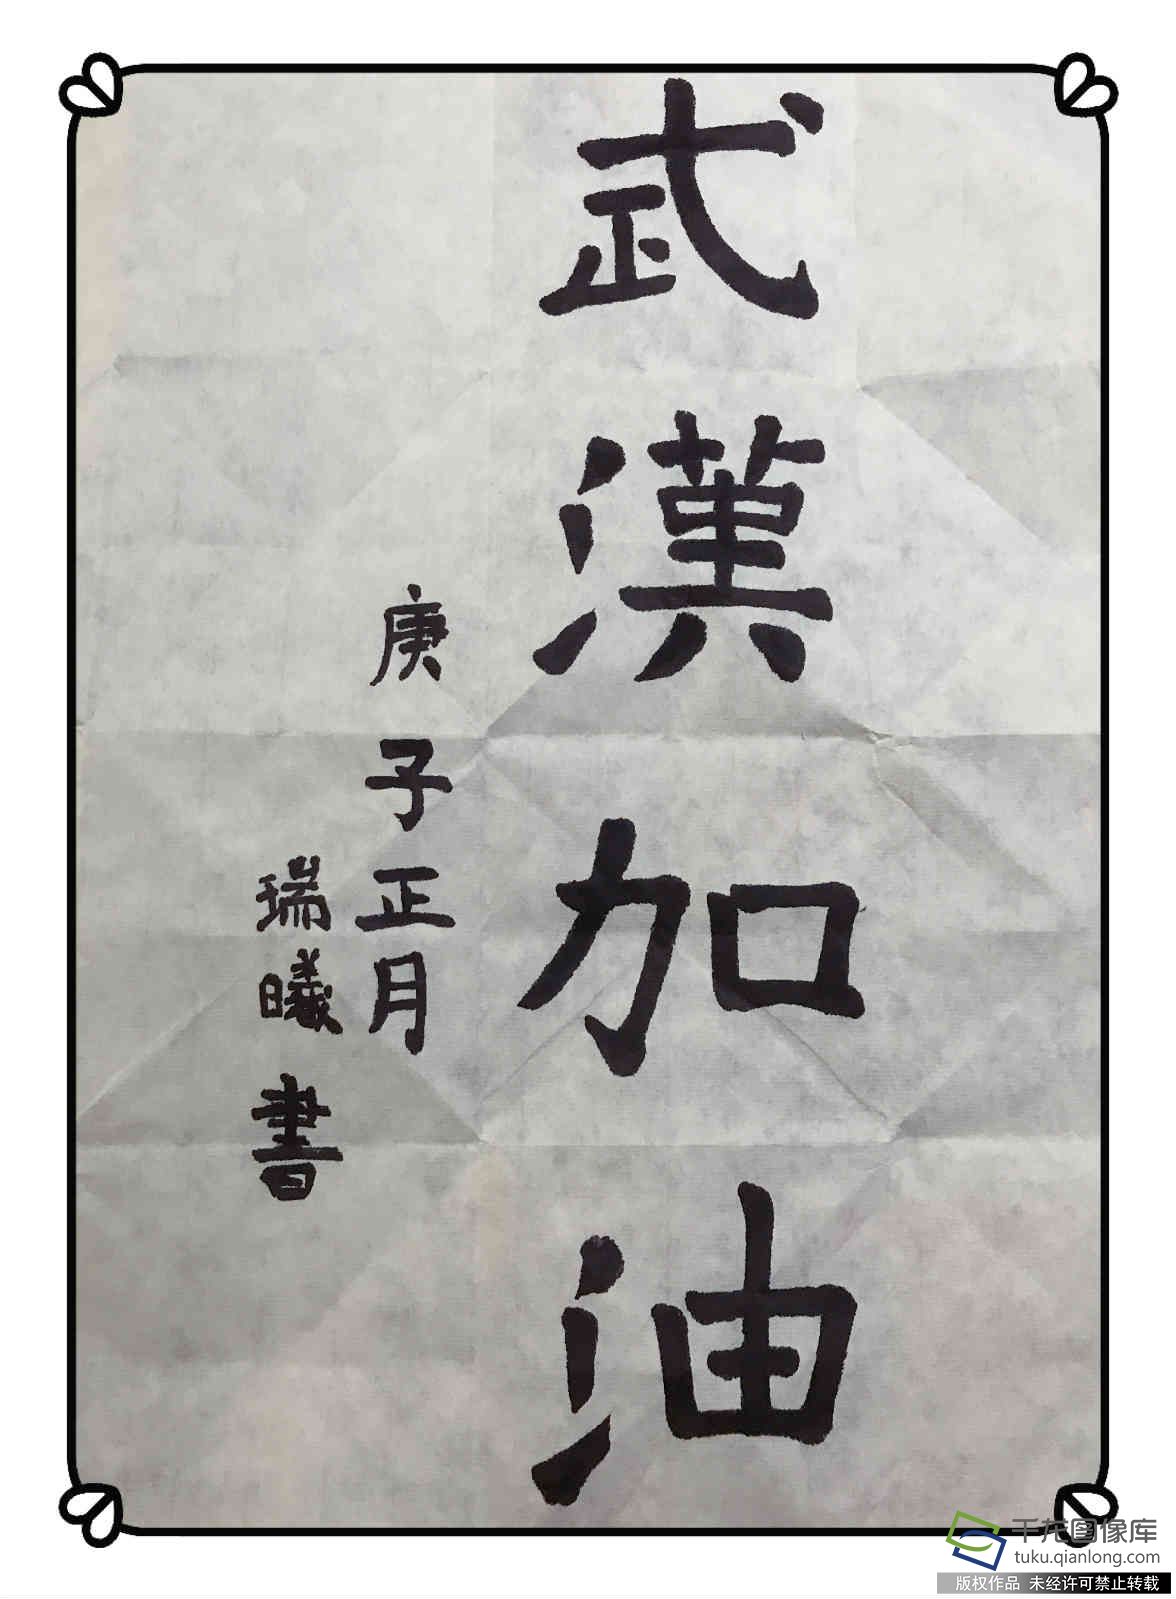 武漢加油
庚子正月
瑞曦書
千龙图像库
tuku.qianlong.com
版权作品 未经许可禁止转载